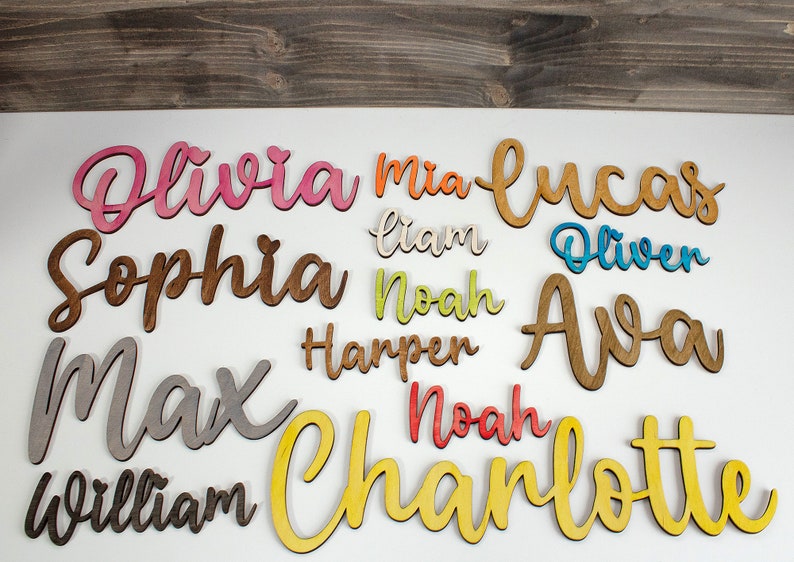 Olivia
Mia
Lucas
Sophia
Liam
Oliver
Noah
Ava
Harper
Max
Noah
William
Charlotte